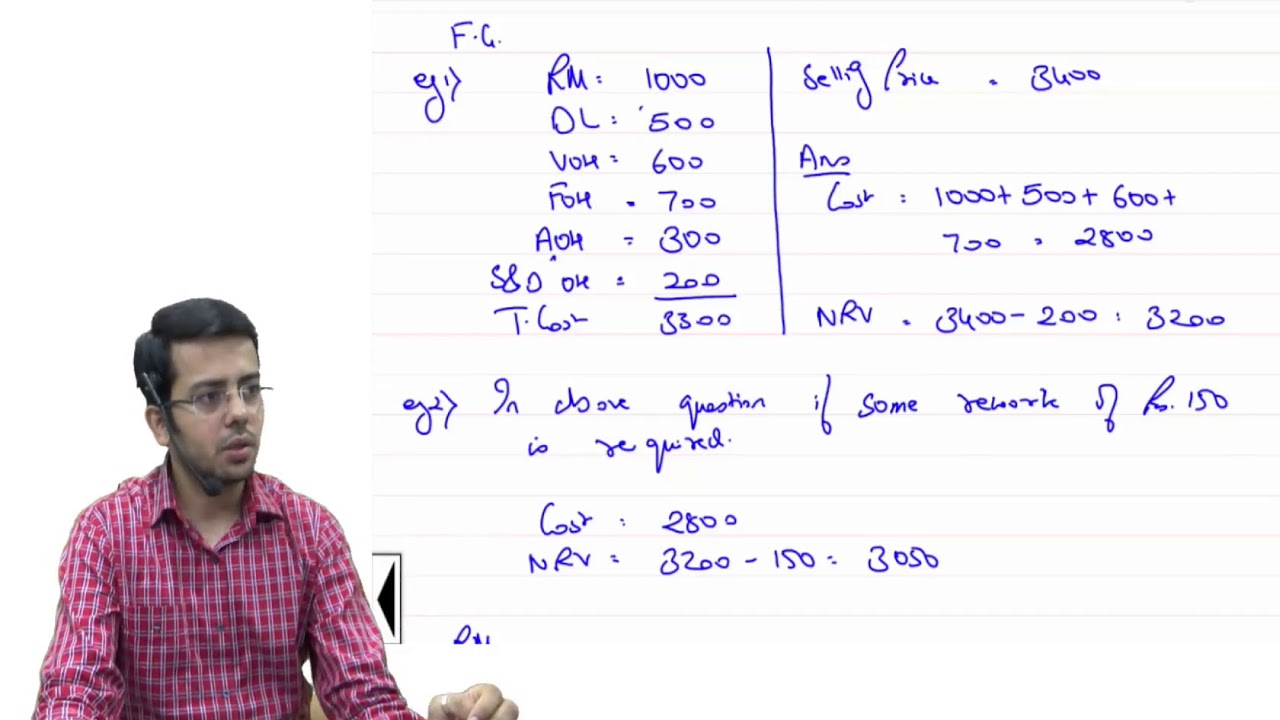 F.G.
eg1)
RM = 1000
DL = 500
VOH = 600
FOH = 700
AOH = 300
S&D OH = 200
T. Cost 3300
Selling Price = 3400
Ans
Cost = 1000+ 500+ 600+
700 = 2800
NRV = 3400 - 200 = 3200
eg2) In above question if some rework of Rs. 150
is required.
Cost = 2800
NRV = 3200 - 150 = 3050